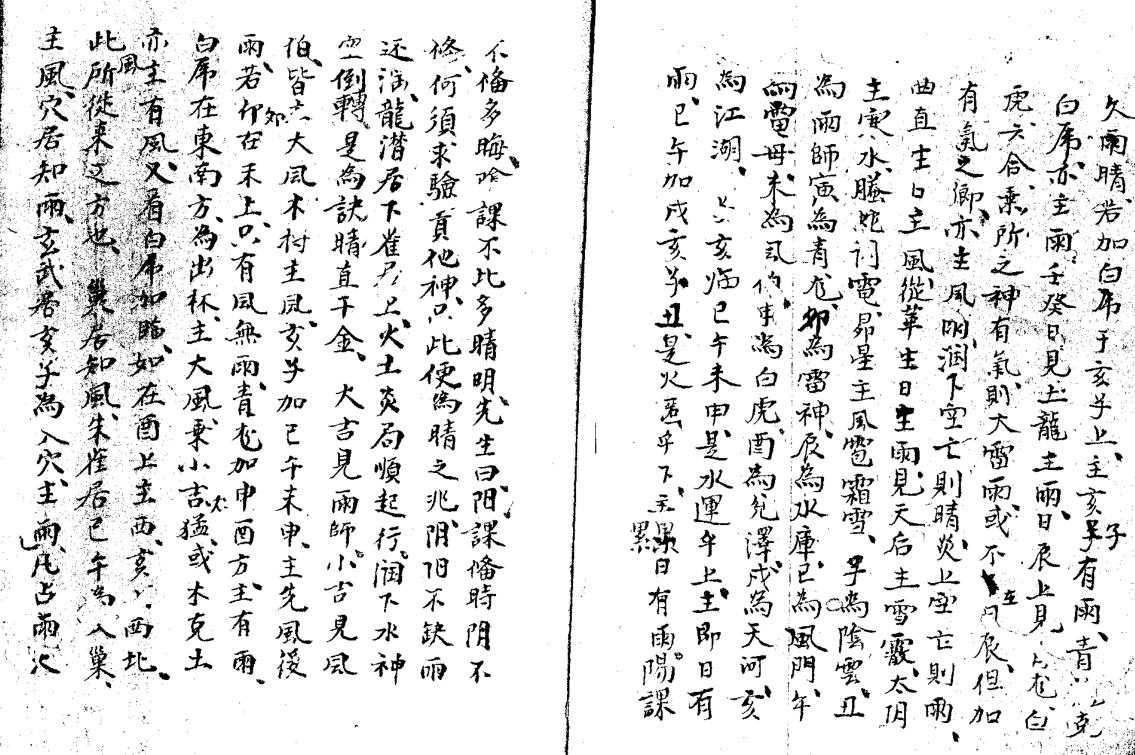 久雨晴若加白帍于亥子上主亥子有雨青
白帍亦主雨壬癸日見土龍主雨日辰上見龙白
虎六合乘所之神有氣則大雷雨或不在日辰但加
有氣之鄉亦主風明潤下空亡則晴炎上空亡則雨
曲直生日主風從革生日主雨見天后主雪霰太阴
主灾水螣蛇词電昴星主風雹霜雪子為陰雲丑
為雨師寅為青龙卯為雷神辰為水庫巳為風門午
為電母未為风伯申為白虎酉為兌澤戌為天河亥
為江湖亥临巳午未申是水運午上主即日有
雨巳午加戌亥子丑是火下主累日有雨陽課
不俻多晦陰課不比多晴明先生曰阳課俻時阴不
俻何須求驗貢他神只此便為晴之兆阴阳不缺雨
还滋龍潜居下雀上火土炎局順起行润下水神
空倒轉是為訣晴直千金大吉見雨師小吉見风
伯皆主大风木树主风亥子加巳午未申主先風後
雨若卯在未上只有风無雨青龙加申酉方主有雨
白帍在東南方為出林主大風乘小吉猛或木克土
亦主有風又看白帍加臨如在酉上主西亥西北
此風所從来之方也巢居知風朱雀居巳午為入巢
主風穴居知雨玄武居亥子為入穴主雨凡占雨